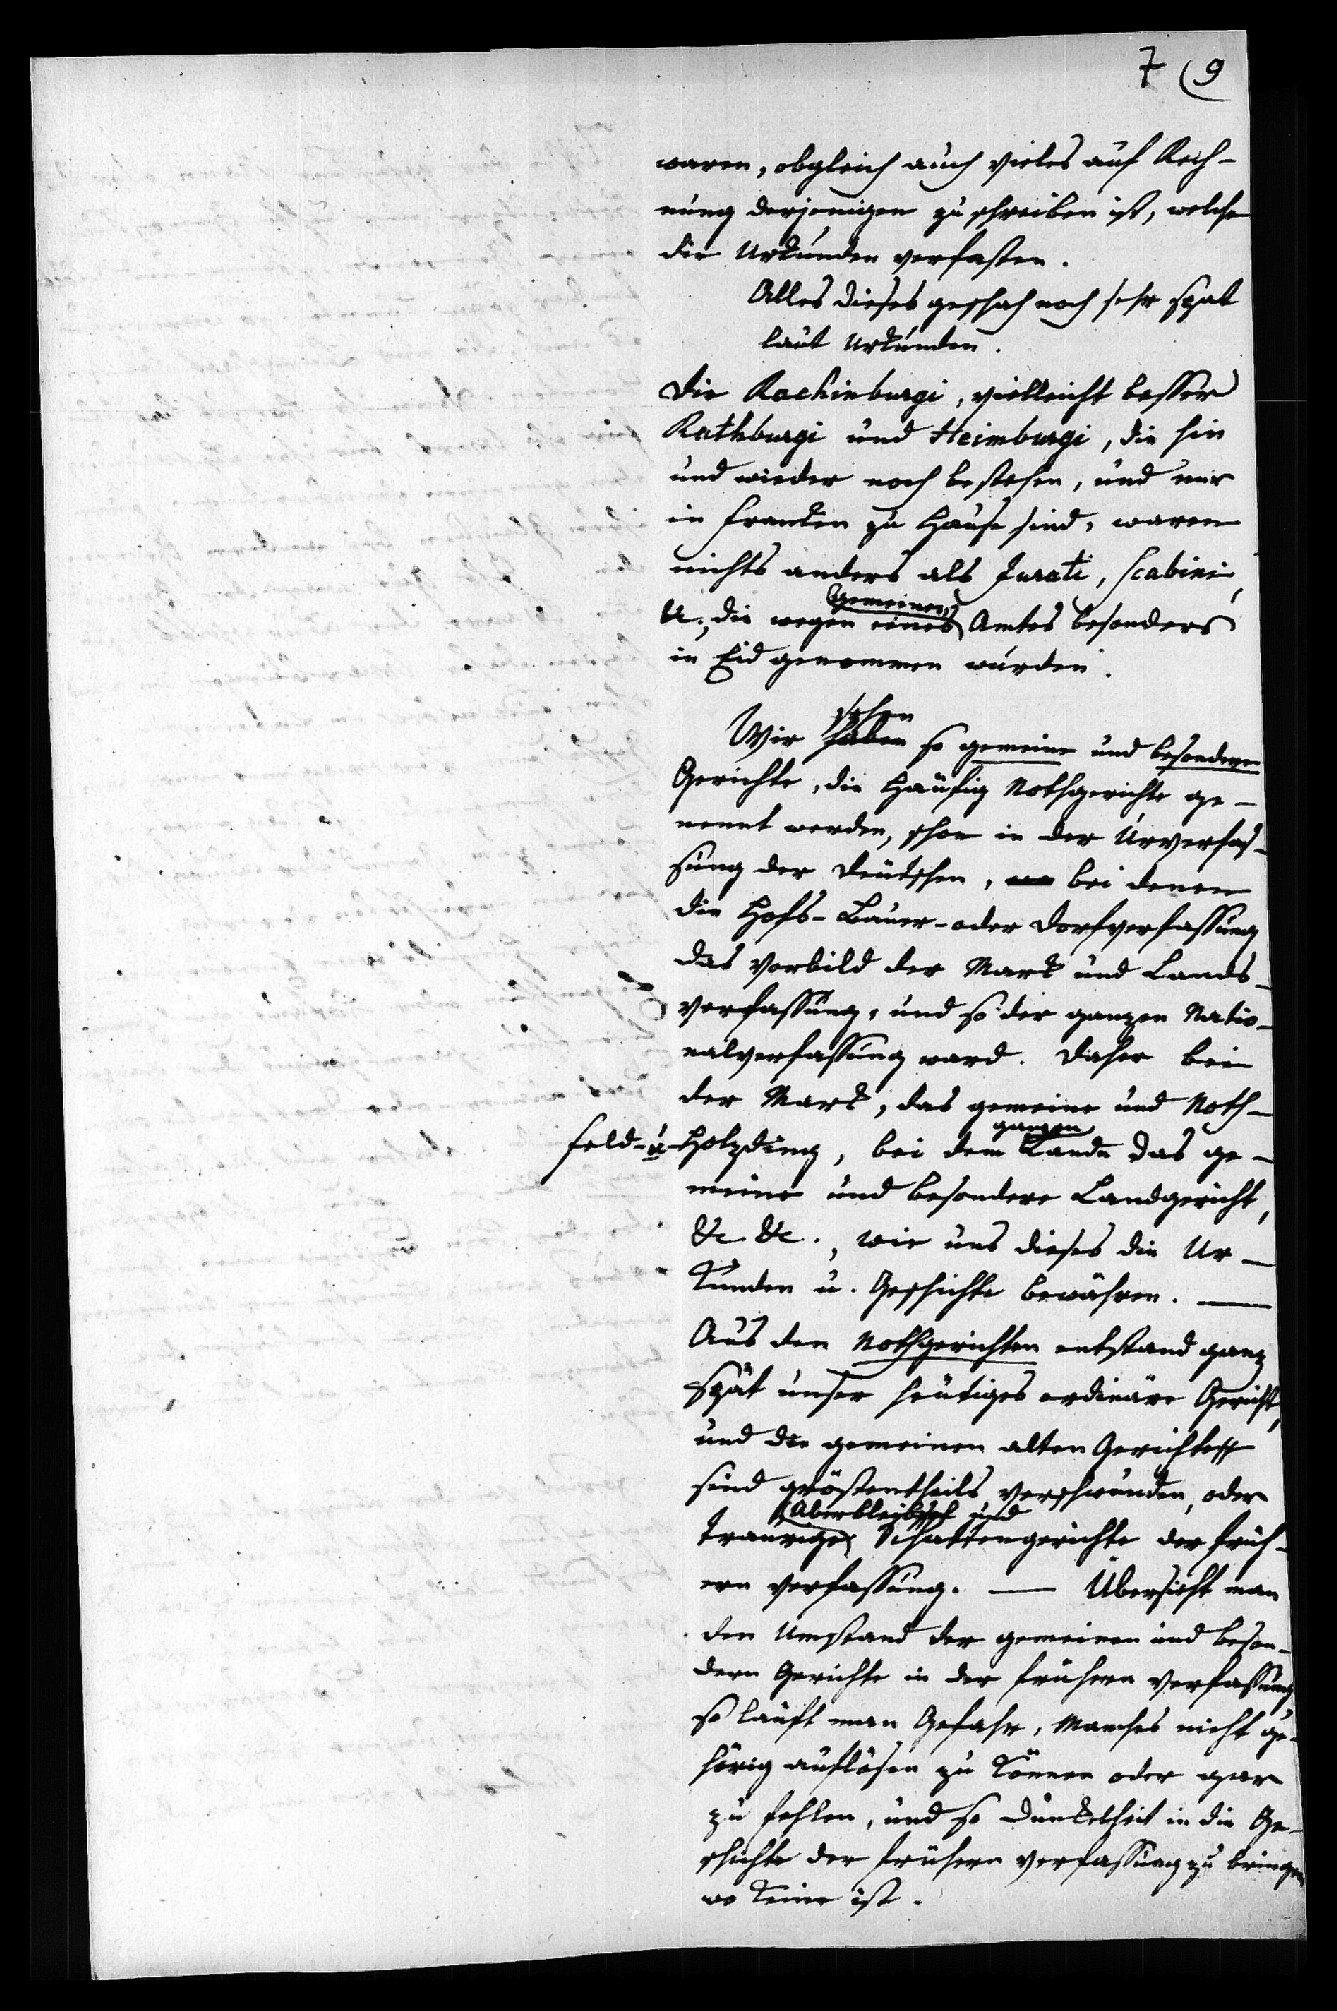 7 (9
waren, obgleich auch vieles auf Rech-
nung derjenigen zu schreiben ist, welche
die Urkunden verfasten.
Alles dieses geschah noch sehr spat
laut Urkunden.
Die Rachinburgi, vielleicht besser
Rathburgi und Heimburgi, die hin
und wieder noch bestehen, und nur
in Franken zu Hause sind, waren
nichts anders als Jurati, Scabini,
Gemeinen
&., die wegen eines Amtes besonders
in Eid genommen wurden.
sehen
Wir haben so gemeine und besondere
Gerichte, die häufig Nothgerichte ge-
nennt werden, schon in der Urverfas-
sung der Deutschen, wo bei denen
die Hofs- Bauer- oder Dorfverfassung
das Vorbild der Mark und Lands-
verfassung, und so der ganzen Natio-
nalverfassung ward. Daher bei
der Mark, das gemeine und Noth-
ganzen
feld- u. Holzding, bei dem Lande das ge-
meine und besondere Landgericht,
&c &c., wie uns dieses die Ur-
kunden u. Geschichte bewähren. —
Aus den Nothgerichten entstand ganz
spät unser heutiges ordinäre Gericht,
und die gemeinen alten Gerichte
sind gröstentheils verschwunden, oder
Überbleibsel und
traurige Schattengerichte der früh-
ern Verfassung. — Übersieht man
den Umstand der gemeinen und beson-
dern Gerichte in der frühern Verfassung
so läuft man Gefahr, Manches nicht ge-
hörig auflösen zu können oder gar
zu fehlen, und so Dunkelheit in die Ge-
schichte der frühern Verfassung zu bringen
wo keine ist.